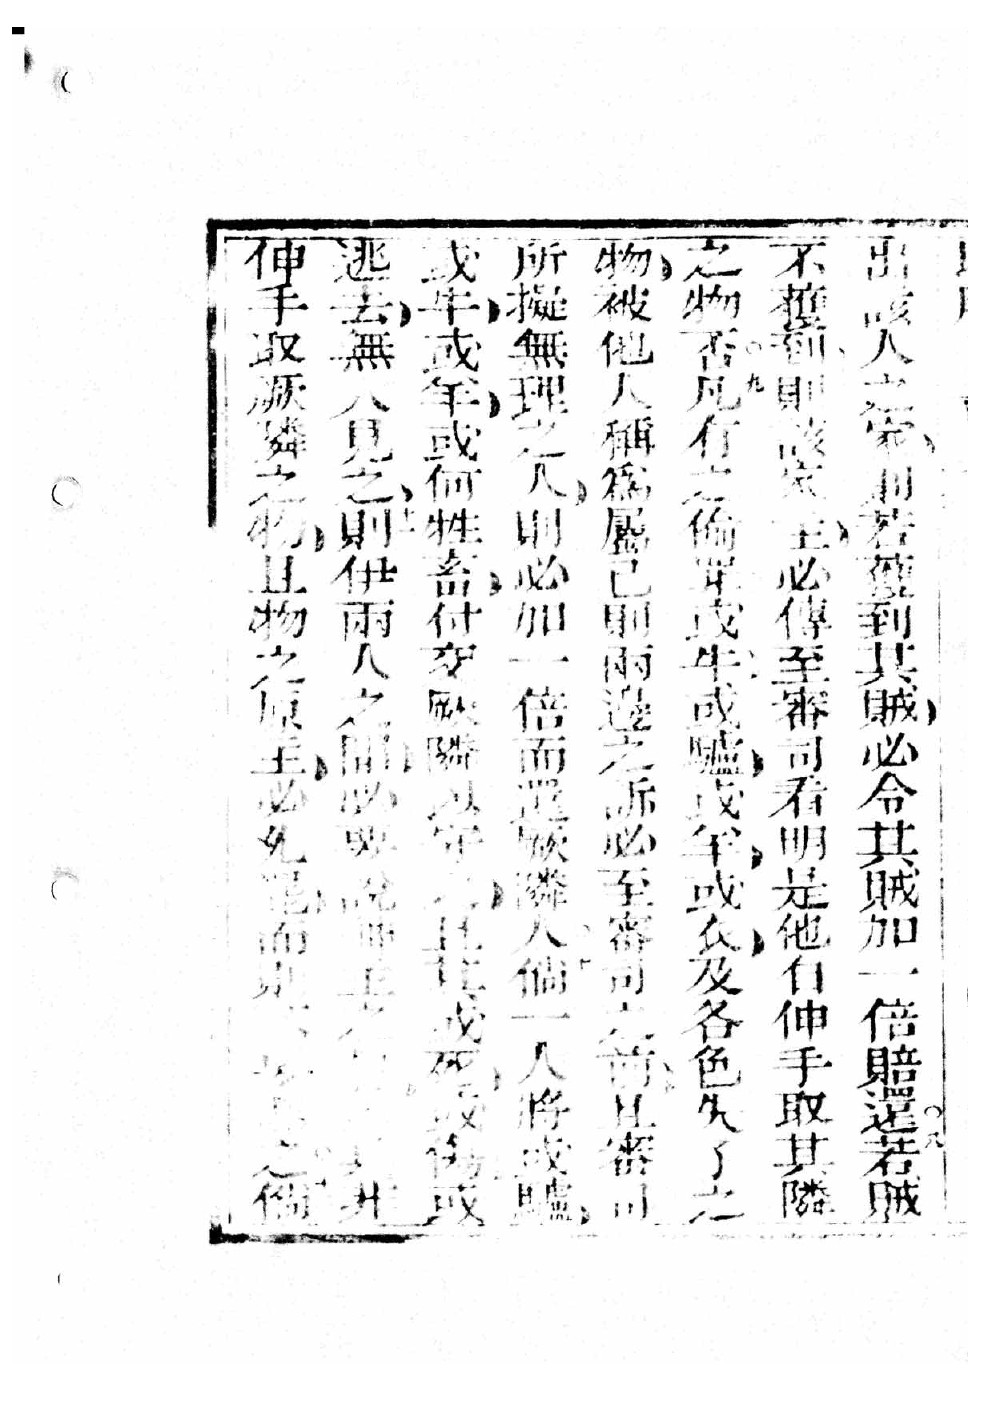 出該人之家則若獲到其賊必令其賊加一倍賠還〇八若賊
不獲到則該家主必傳至審司看明是他自伸手取其隣
之物否〇九凡有之偷罪或牛或驢或羊或衣及各色失了之
物被他人稱爲屬己則兩邊之訴必至審司之前且審司
所擬無理之人則必加一倍而還厥隣人〇十倘一人將或驢
或牛或羊或何牲畜付交厥隣以守之且其或死或傷或
逃去無人見之十一則伊兩人之間必
伸手取厥隣之物且物之原主必
之倘